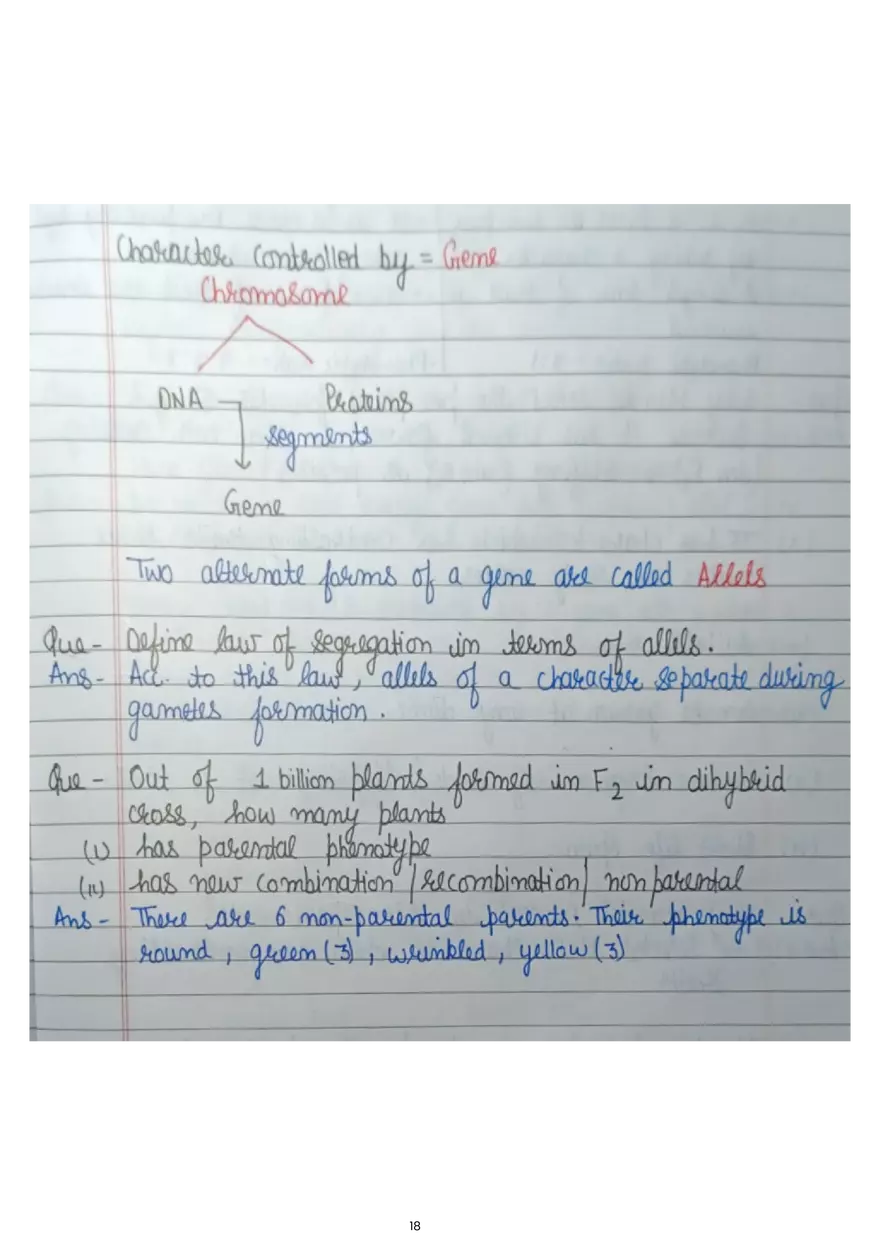 Character controlled by = Gene
Chromosome
DNA Proteins
segments
Gene
Two alternate forms of a gene are called Allels
Que - Define law of segregation in terms of allels.
Ans - Acc. to this law, allels of a character separate during
gametes formation.
Que - Out of 1 billion plants formed in F₂ in dihybrid
cross, how many plants
(i) has parental phenotype
(ii) has new combination / recombination / non parental
Ans - There are 6 non-parental parents. Their phenotype is
round, green (3), wrinkled, yellow (3)
18